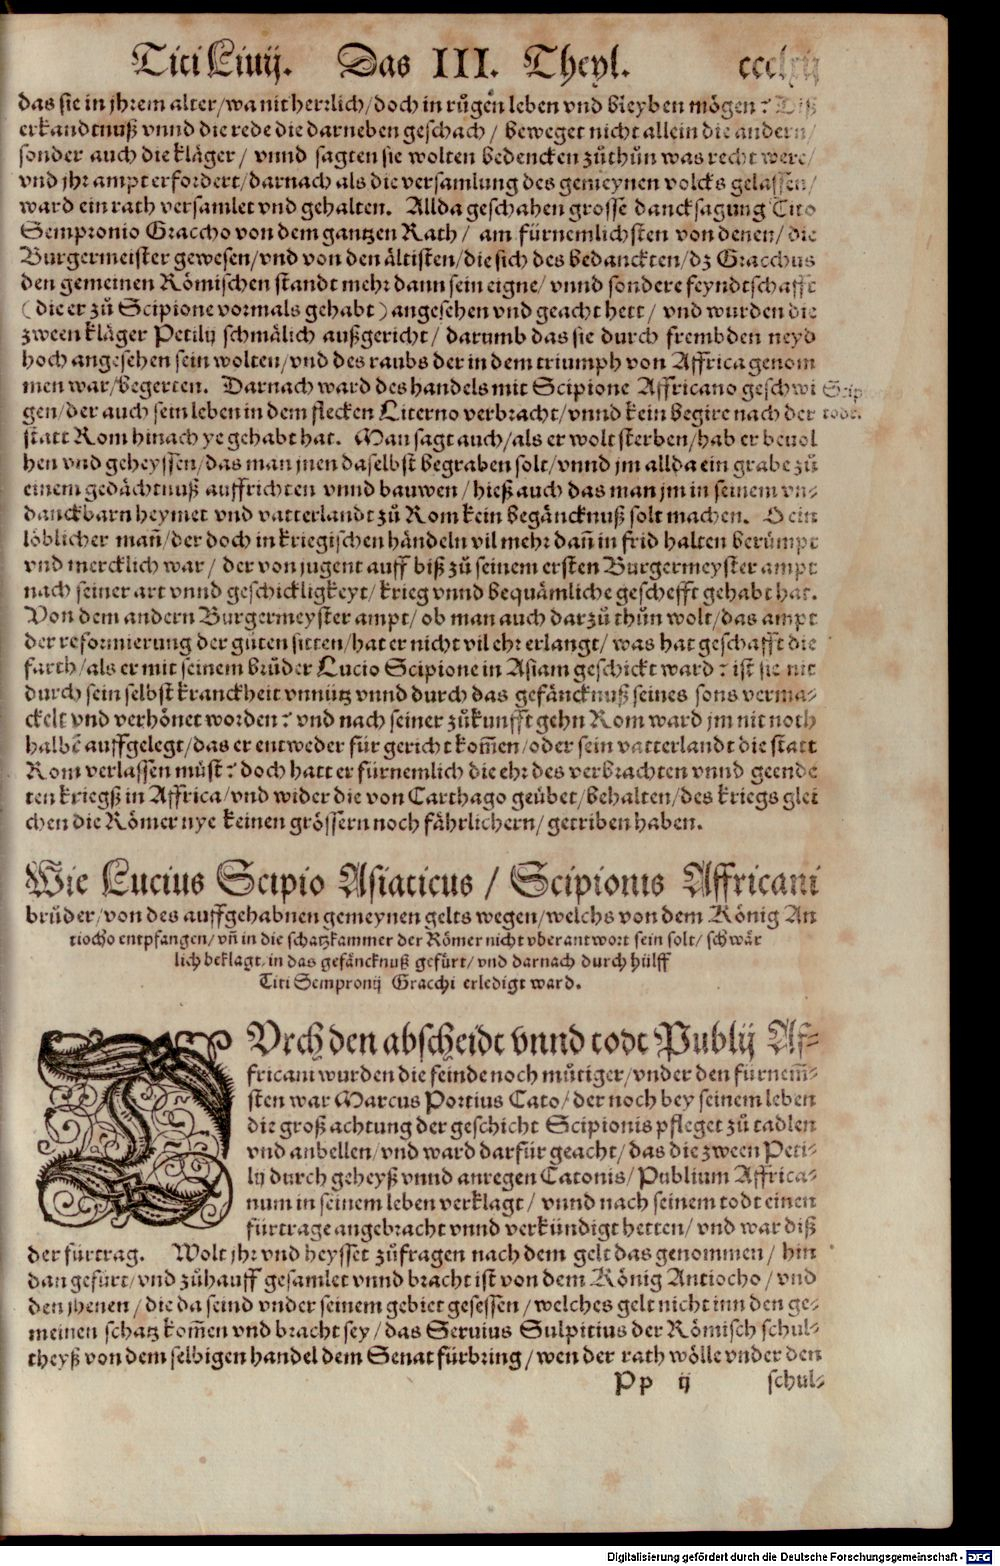 Titi Liuij. Das III. Theyl. ccclxij
das sie in jhrem alter/ wa nit herrlich/ doch in růgen leben vnd bleyben mögen? Diß
erkandtnuß vnnd die rede die darneben geschach/ beweget nicht allein die andern/
sonder auch die kläger/ vnnd sagten sie wolten bedencken zůthůn was recht were/
vnd jhr ampt erfordert/ darnach als die versamlung des gemeynen volcks gelassen/
ward ein rath versamlet vnd gehalten. Allda geschahen grosse dancksagung Tito
Sempronio Graccho von dem gantzen Rath/ am fürnemlichsten von denen/ die
Burgermeister gewesen/ vnd von den ältisten/ die sich des bedanckten/ dz Gracchus
den gemeinen Römischen standt mehr dann sein eigne/ vnnd sondere feyndtschafft
(die er zů Scipione vormals gehabt) angesehen vnd geacht hett/ vnd wurden die
zween kläger Petilij schmälich außgericht/ darumb das sie durch frembden neyd
hoch angesehen sein wolten/ vnd des raubs der in dem triumph von Affrica genom
men war/ begerten. Darnach ward des handels mit Scipione Affricano geschwi
gen/ der auch sein leben in dem flecken Literno verbracht/ vnnd kein begire nach der
todt.
statt Rom hinach ye gehabt hat. Man sagt auch/ als er wolt sterben/ hab er beuol
hen vnd geheyssen/ das man jnen daselbst begraben solt/ vnnd jm allda ein grabe zů
einem gedächtnuß auffrichten vnnd bauwen/ hieß auch das man jm in seinem vn-
danckbarn heymet vnd vatterlandt zů Rom kein begäncknuß solt machen. O ein
löblicher mañ/ der doch in kriegischen händeln vil mehr dañ in frid halten berümpt
vnd mercklich war/ der von jugent auff biß zů seinem ersten Burgermeyster ampt
nach seiner art vnnd geschickligkeyt/ krieg vnnd bequämliche geschefft gehabt hat.
Von dem andern Burgermeyster ampt/ ob man auch darzů thůn wolt/ das ampt
der reformierung der gůten sitten/ hat er nicht vil ehr erlangt/ was hat geschafft die
farth/ als er mit seinem brůder Lucio Scipione in Asiam geschickt ward? ist sie nit
durch sein selbst kranckheit vnnütz vnnd durch das gefäncknuß seines sons verma-
ckelt vnd verhönet worden? vnd nach seiner zůkunfft gehn Rom ward jm nit noth
halbẽ auffgelegt/ das er entweder für gericht kom̃en/ oder sein vatterlandt die statt
Rom verlassen můst? doch hatt er fürnemlich die ehr des verbrachten vnnd geende
ten kriegß in Affrica/ vnd wider die von Carthago geübet/ behalten/ des kriegs glei
chen die Römer nye keinen grössern noch fährlichern/ getriben haben.
Wie Lucius Scipio Asiaticus/ Scipionis Affricani
brůder/ von des auffgehabnen gemeynen gelts wegen/ welchs von dem König An
tiocho entpfangen/ vñ in die schatzkammer der Römer nicht vberantwort sein solt/ schwär
lich beklagt/ in das gefäncknuß gefürt/ vnd darnach durch hülff
Titi Sempronij Gracchi erledigt ward.
DVrch den abscheidt vnnd todt Publij Af-
fricani wurden die feinde noch můtiger/ vnder den fürnem̃-
sten war Marcus Portius Cato/ der noch bey seinem leben
die groß achtung der geschicht Scipionis pfleget zů tadlen
vnd anbellen/ vnd ward darfür geacht/ das die zween Peti-
lij durch geheyß vnnd anregen Catonis/ Publium Affrica-
num in seinem leben verklagt/ vnnd nach seinem todt einen
fürtrage angebracht vnnd verkündigt hetten/ vnd war diß
der fürtrag. Wolt jhr vnd heysset zůfragen nach dem gelt das genommen/ hin
dan gefürt/ vnd zůhauff gesamlet vnnd bracht ist von dem König Antiocho/ vnd
den jhenen/ die da seind vnder seinem gebiet gesessen/ welches gelt nicht inn den ge-
meinen schatz kom̃en vnd bracht sey/ das Seruius Sulpitius der Römisch schul-
theyß von dem selbigen handel dem Senat fürbring/ wen der rath wölle vnder den
Pp ij schul-
Digitalisierung gefördert durch die Deutsche Forschungsgemeinschaft - DFG